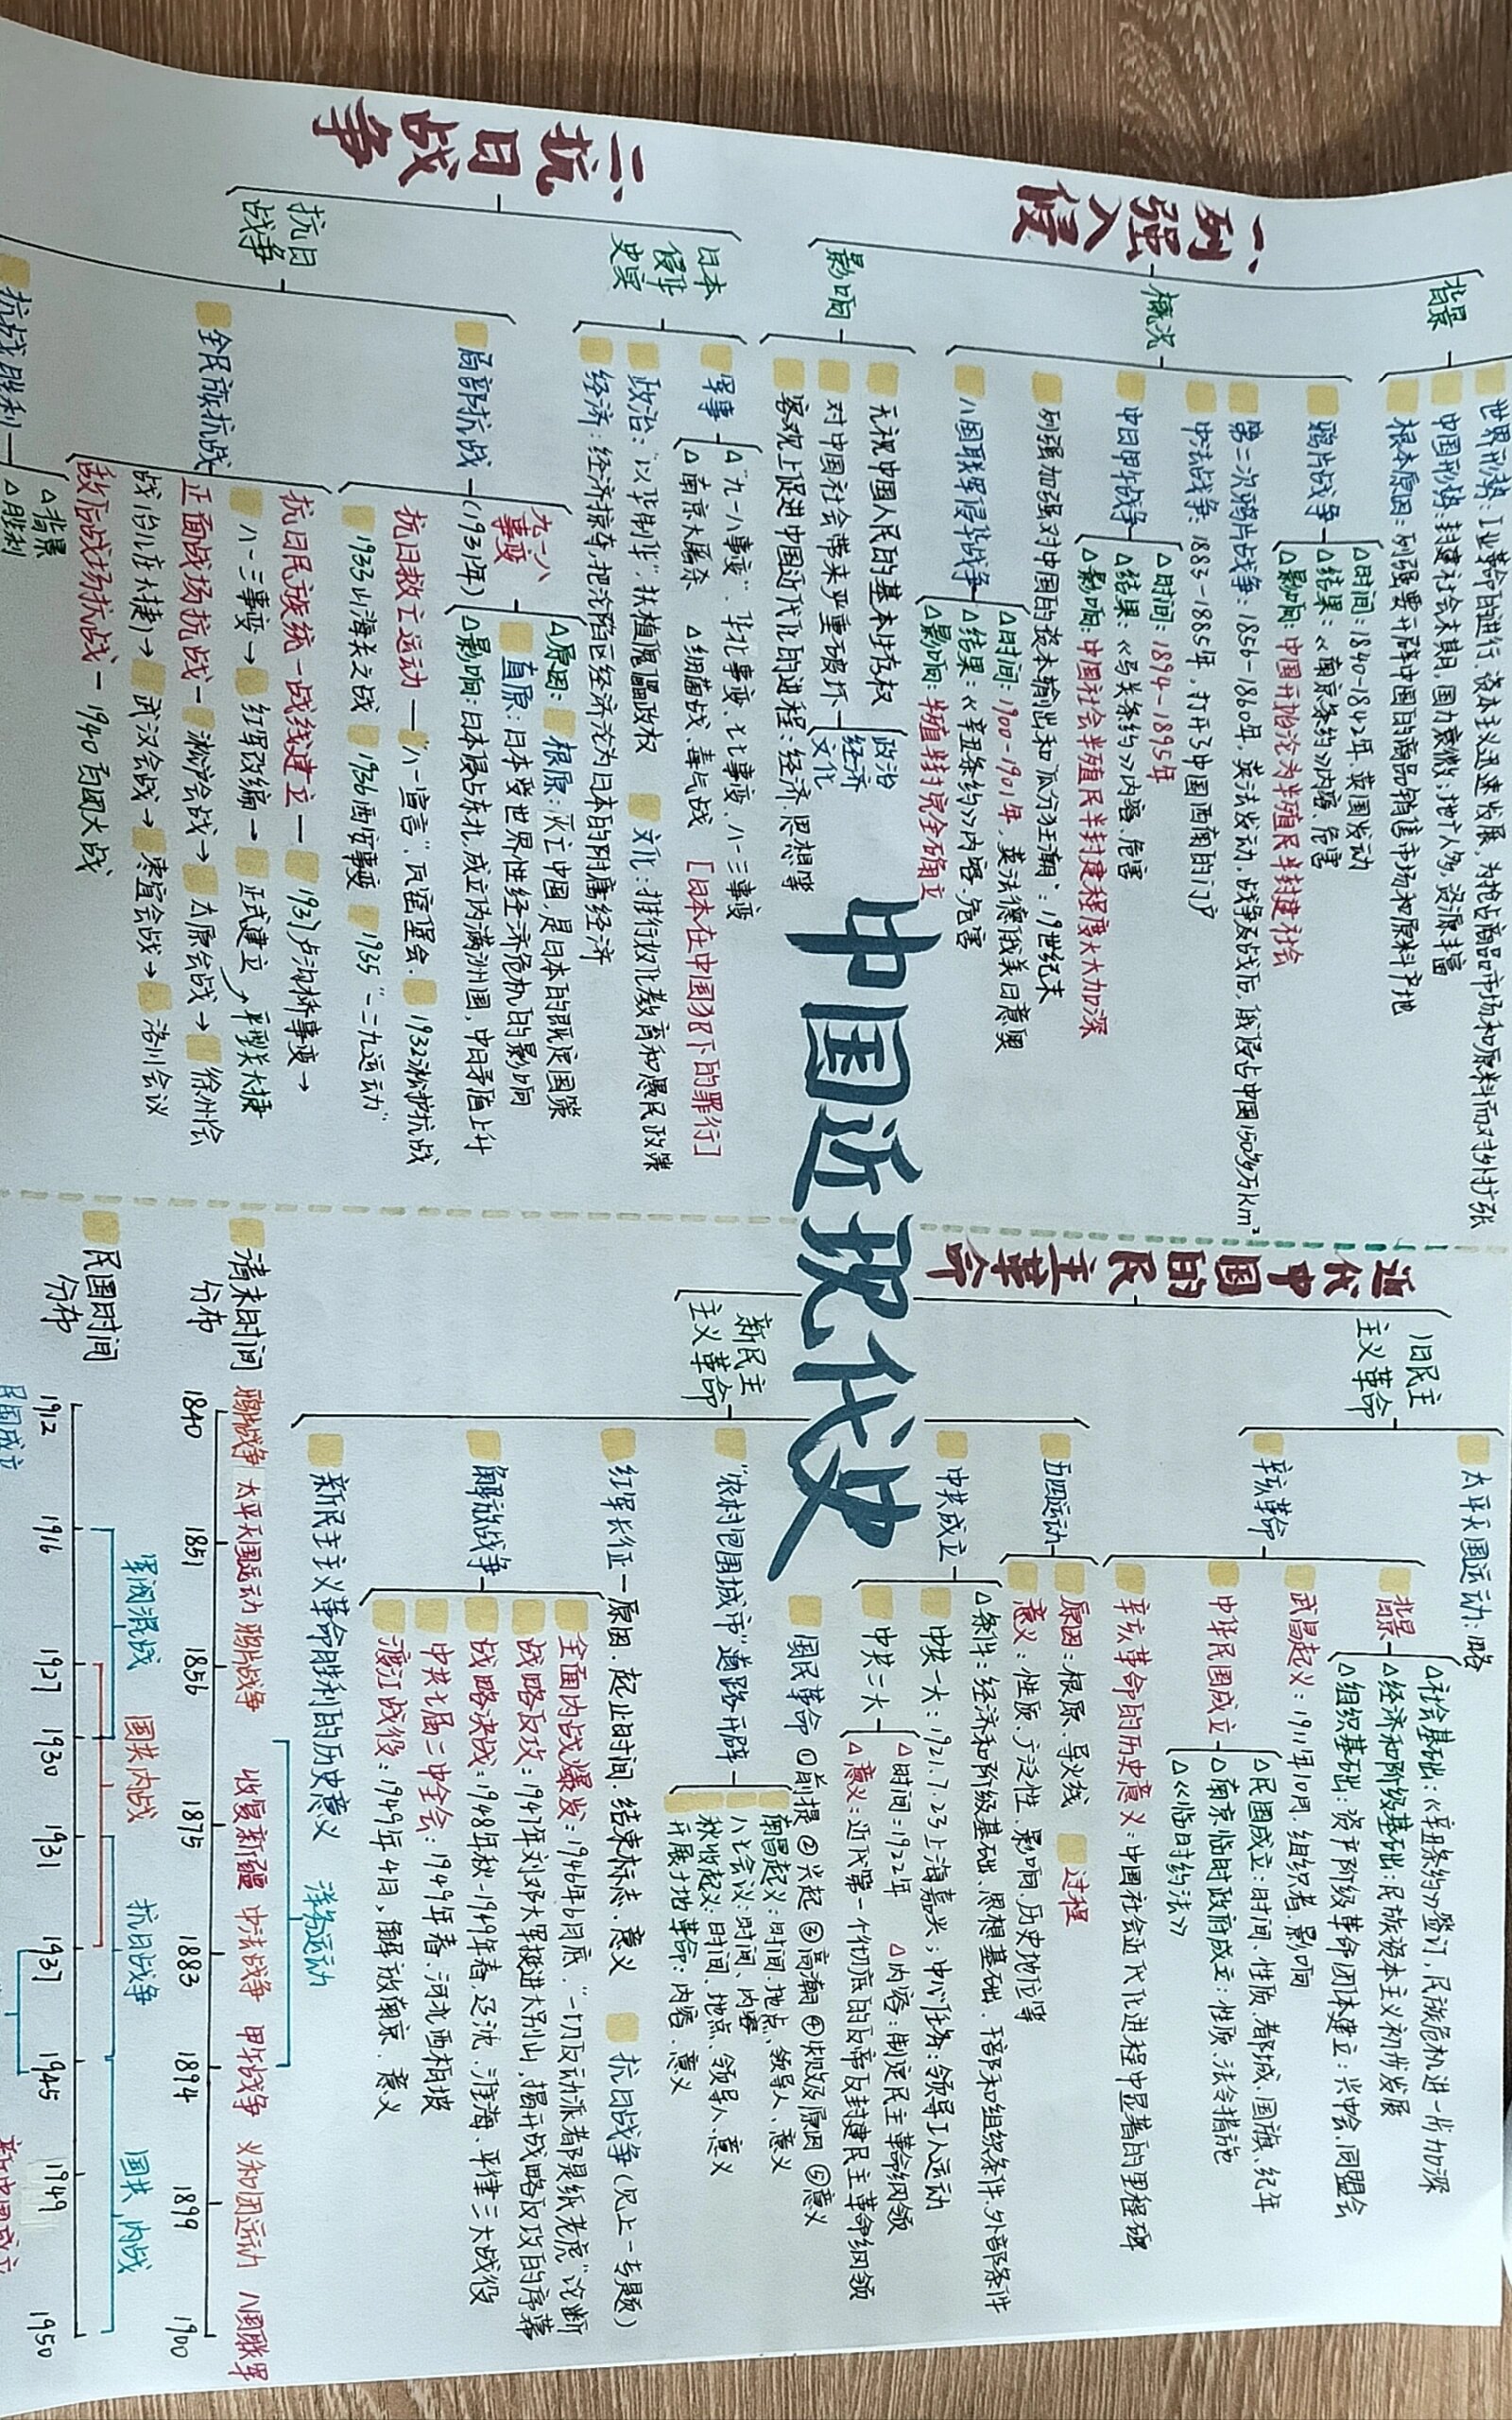 中国近现代史
一、列强入侵
背景
世界形势：工业革命的进行，资本主义迅速发展，为抢占商品市场和原料而对外扩张
中国形势：封建社会末期，国力衰微；地广人多，资源丰富
根本原因：列强要开辟中国的商品销售市场和原料产地
概况
鸦片战争
△时间：1840-1842年，英国发动
△结果：《南京条约》内容、危害
△影响：中国开始沦为半殖民半封建社会
第二次鸦片战争：1856-1860年，英法发动，战争及战后，俄侵占中国150多万km²
中法战争：1883-1885年，打开了中国西南的门户
中日甲午战争
△时间：1894-1895年
△结果：《马关条约》内容、危害
△影响：中国社会半殖民半封建程度大大加深
列强加强对中国的资本输出和瓜分狂潮：19世纪末
八国联军侵华战争
△时间：1900-1901年，英法德俄美日意奥
△结果：《辛丑条约》内容、危害
△影响：半殖半封完全确立
影响
无视中国人民的基本生存权
对中国社会带来严重破坏
政治
经济
文化
客观上促进中国近代化的进程：经济、思想等
二、抗日战争
日本侵华史实
军事
△"九一八事变"、华北事变、七七事变、八一三事变
△南京大屠杀 △细菌战、毒气战 [日本在中国犯下的罪行]
政治："以华制华"，扶植傀儡政权
文化：推行奴化教育和愚民政策
经济：经济掠夺，把沦陷区经济沦为日本的附庸经济
抗日战争
局部抗战
九一八事变
(1931年)
△原因：根原：灭亡中国，是日本的既定国策
直原：日本受世界性经济危机的影响
△影响：日本侵占东北，成立伪满洲国，中日矛盾上升
抗日救亡运动—"八一宣言"，瓦窑堡会、1932淞沪抗战
1933山海关之战 1936西安事变 1935"一二九运动"
全民族抗战
抗日民族统一战线建立—1937卢沟桥事变→
八一三事变→红军改编→正式建立 平型关大捷
正面战场抗战—淞沪会战→太原会战→徐州会
战(台儿庄大捷)→武汉会战→枣宜会战→洛川会议
敌后战场抗战—1940百团大战
抗战胜利
△背景
△胜利
近代中国的民主革命
旧民主主义革命
太平天国运动：略
辛亥革命
背景
△社会基础：《辛丑条约》签订，民族危机进一步加深
△经济和阶级基础：民族资本主义初步发展
△组织基础：资产阶级革命团体建立：兴中会、同盟会
武昌起义：1911年10月 组织者、影响
中华民国成立
△民国成立：时间、性质、都城、国旗、纪年
△南京临时政府成立：性质、法令措施
△《临时约法》
辛亥革命的历史意义：中国社会近代化进程中显著的里程碑
新民主主义革命
五四运动
原因：根原、导火线 过程
意义：性质、广泛性、影响、历史地位等
中共成立
△条件：经济和阶级基础、思想基础、干部和组织条件、外部条件
中共一大：1921.7.23上海嘉兴；中心任务：领导工人运动
中共二大
△时间：1922年 △内容：制定民主革命纲领
△意义：近代第一个彻底的反帝反封建民主革命纲领
国民革命 ①前提 ②兴起 ③高潮 ④失败及原因 ⑤意义
"农村包围城市"道路开辟
南昌起义：时间、地点、领导人、意义
八七会议：时间、内容
秋收起义：时间、地点、领导人、意义
开展土地革命：内容、意义
红军长征—原因、起止时间、结束标志、意义
抗日战争(见上一专题)
解放战争
全面内战爆发：1946年6月底，"一切反动派都是纸老虎"论断
战略反攻：1947年刘邓大军挺进大别山，揭开战略反攻的序幕
战略决战：1948年秋-1949年春，辽沈、淮海、平津三大战役
中共七届二中全会：1949年春、河北西柏坡
渡江战役：1949年4月，解放南京、意义
新民主主义革命胜利的历史意义
清末时间分布
洋务运动
鸦片战争 太平天国运动 鸦片战争 收复新疆 中法战争 甲午战争 义和团运动 八国联军
1840 1851 1856 1875 1883 1894 1899 1900
民国时间分布
军阀混战 国共内战 抗日战争 国共内战
1912 1916 1927 1930 1931 1937 1945 1949 1950
民国成立
新中国成立